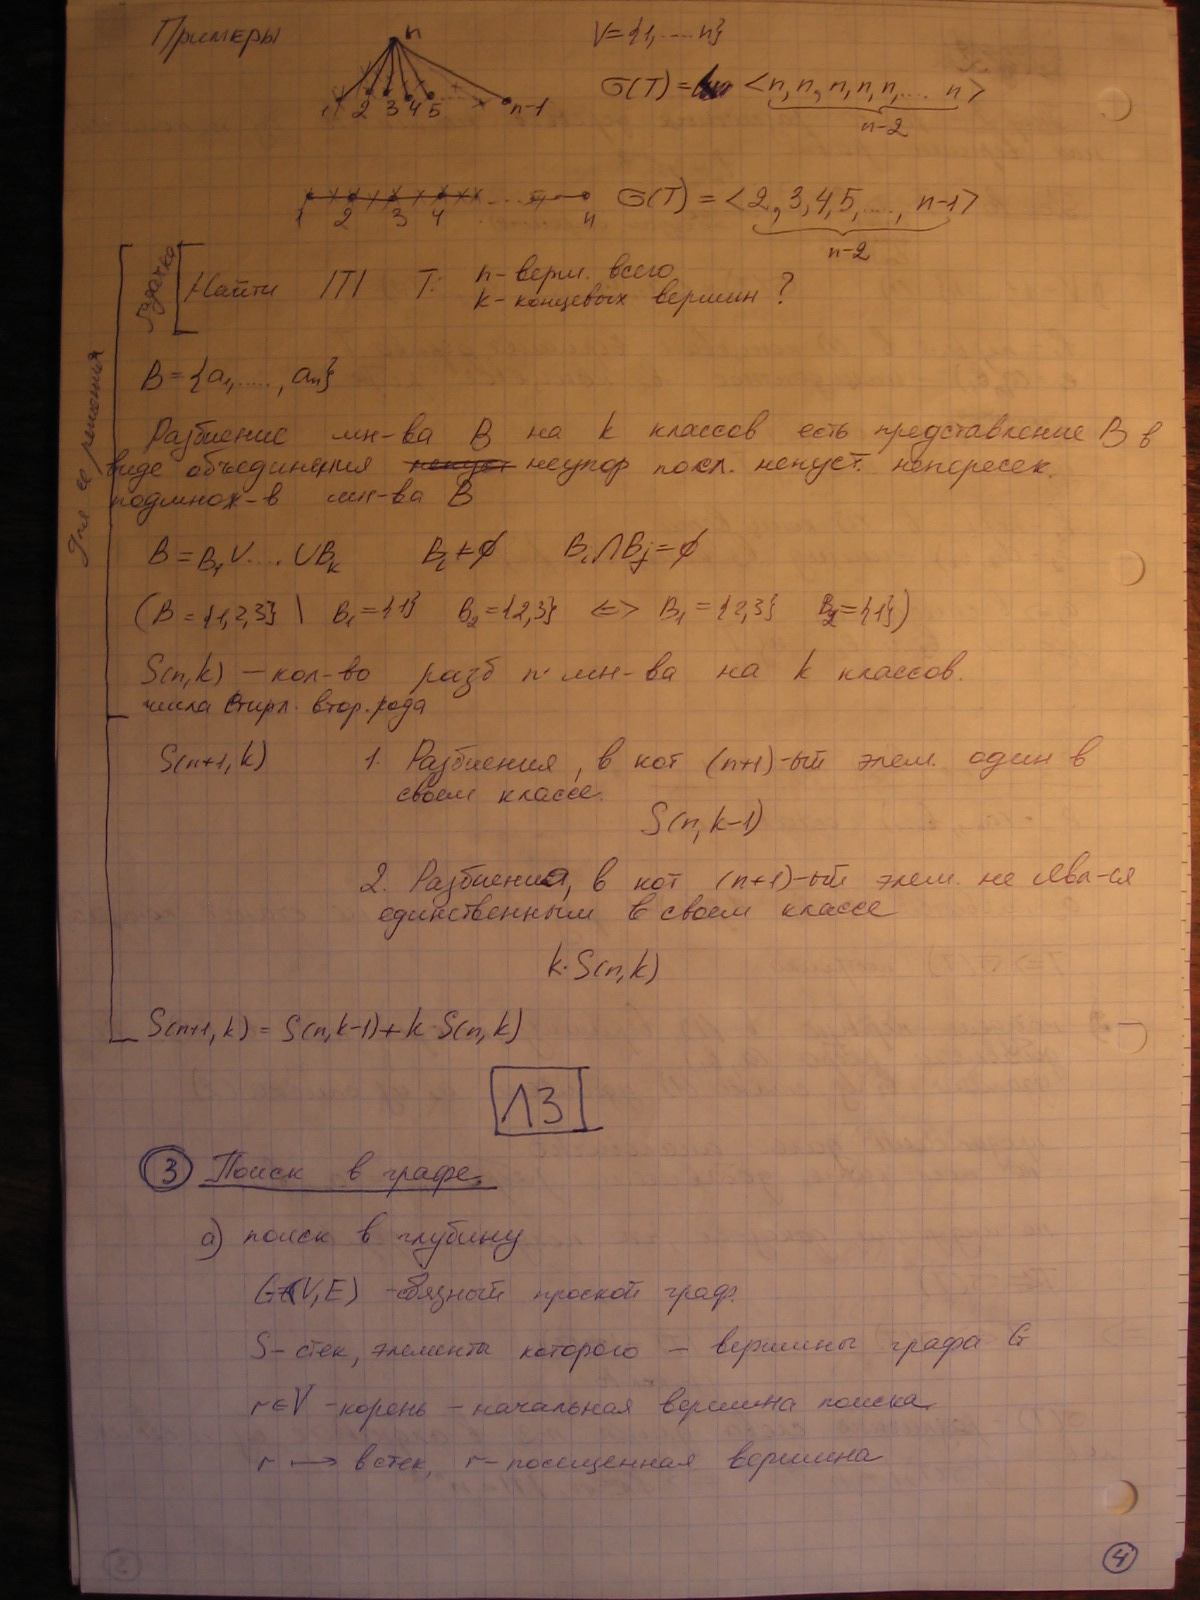 Примеры
n
V={1,....n}
1 2 3 4 5 n-1
σ(T)= <n,n,n,n,n,.... n>
n-2
1 2 3 4 ..... n
σ(T) = <2,3,4,5,...., n-1>
n-2
Задачка
Найти |T| T: n-верш. всего
k-концевых вершин ?
Для ее решения
B={a₁,....., aₙ}
Разбиение мн-ва B на k классов есть представление B в
виде объединения неупор посл. непуст. непересек.
подмнож-в мн-ва B
B=B₁∪.... ∪Bₖ Bᵢ≠∅ Bᵢ∩Bⱼ=∅
(B={1,2,3} \ B₁={1} B₂={2,3} <=> B₁={2,3} B₂={1})
S(n,k) – кол-во разб n· мн-ва на k классов.
числа Стирл. втор. рода
S(n+1,k) 1. Разбиения, в кот (n+1)-ый элем. один в
своем классе.
S(n,k-1)
2. Разбиения, в кот (n+1)-ый элем. не явл-ся
единственным в своем классе
k·S(n,k)
S(n+1,k) = S(n,k-1)+k·S(n,k)
Л3
3 Поиск в графе.
а) поиск в глубину
G=(V,E) -связный проской граф.
S- стек, элементы которого – вершины графа G
r∈V -корень – начальная вершина поиска.
r → в стек, r-посещенная вершина
3
4